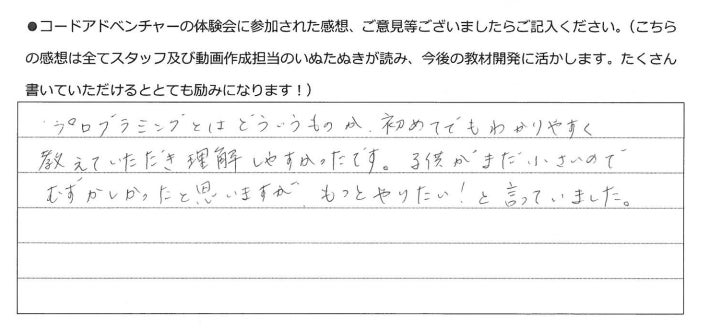 ●コードアドベンチャーの体験会に参加された感想、ご意見等ございましたらご記入ください。（こちら
の感想は全てスタッフ及び動画作成担当のいぬたぬきが読み、今後の教材開発に活かします。たくさん
書いていただけるととても励みになります！）
プログラミングとはどういうものか、初めてでもわかりやすく
教えていただき理解しやすかったです。子供がまだ小さいので
むずかしかったと思いますが、もっとやりたい！と言っていました。